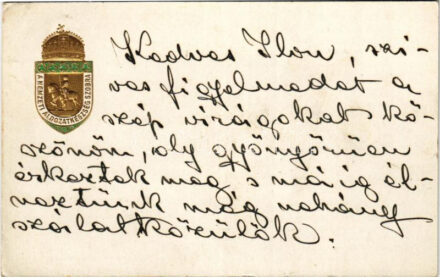 A NEMZETI ÁLDOZATKÉSZSÉG SZOBRA
Kedves Ilon, szi-
ves figyelmedet a
szép virágokat kö-
szönöm, oly gyönyörüen
érkeztek meg s máig él-
veztünk még nehány
szálat közülök.